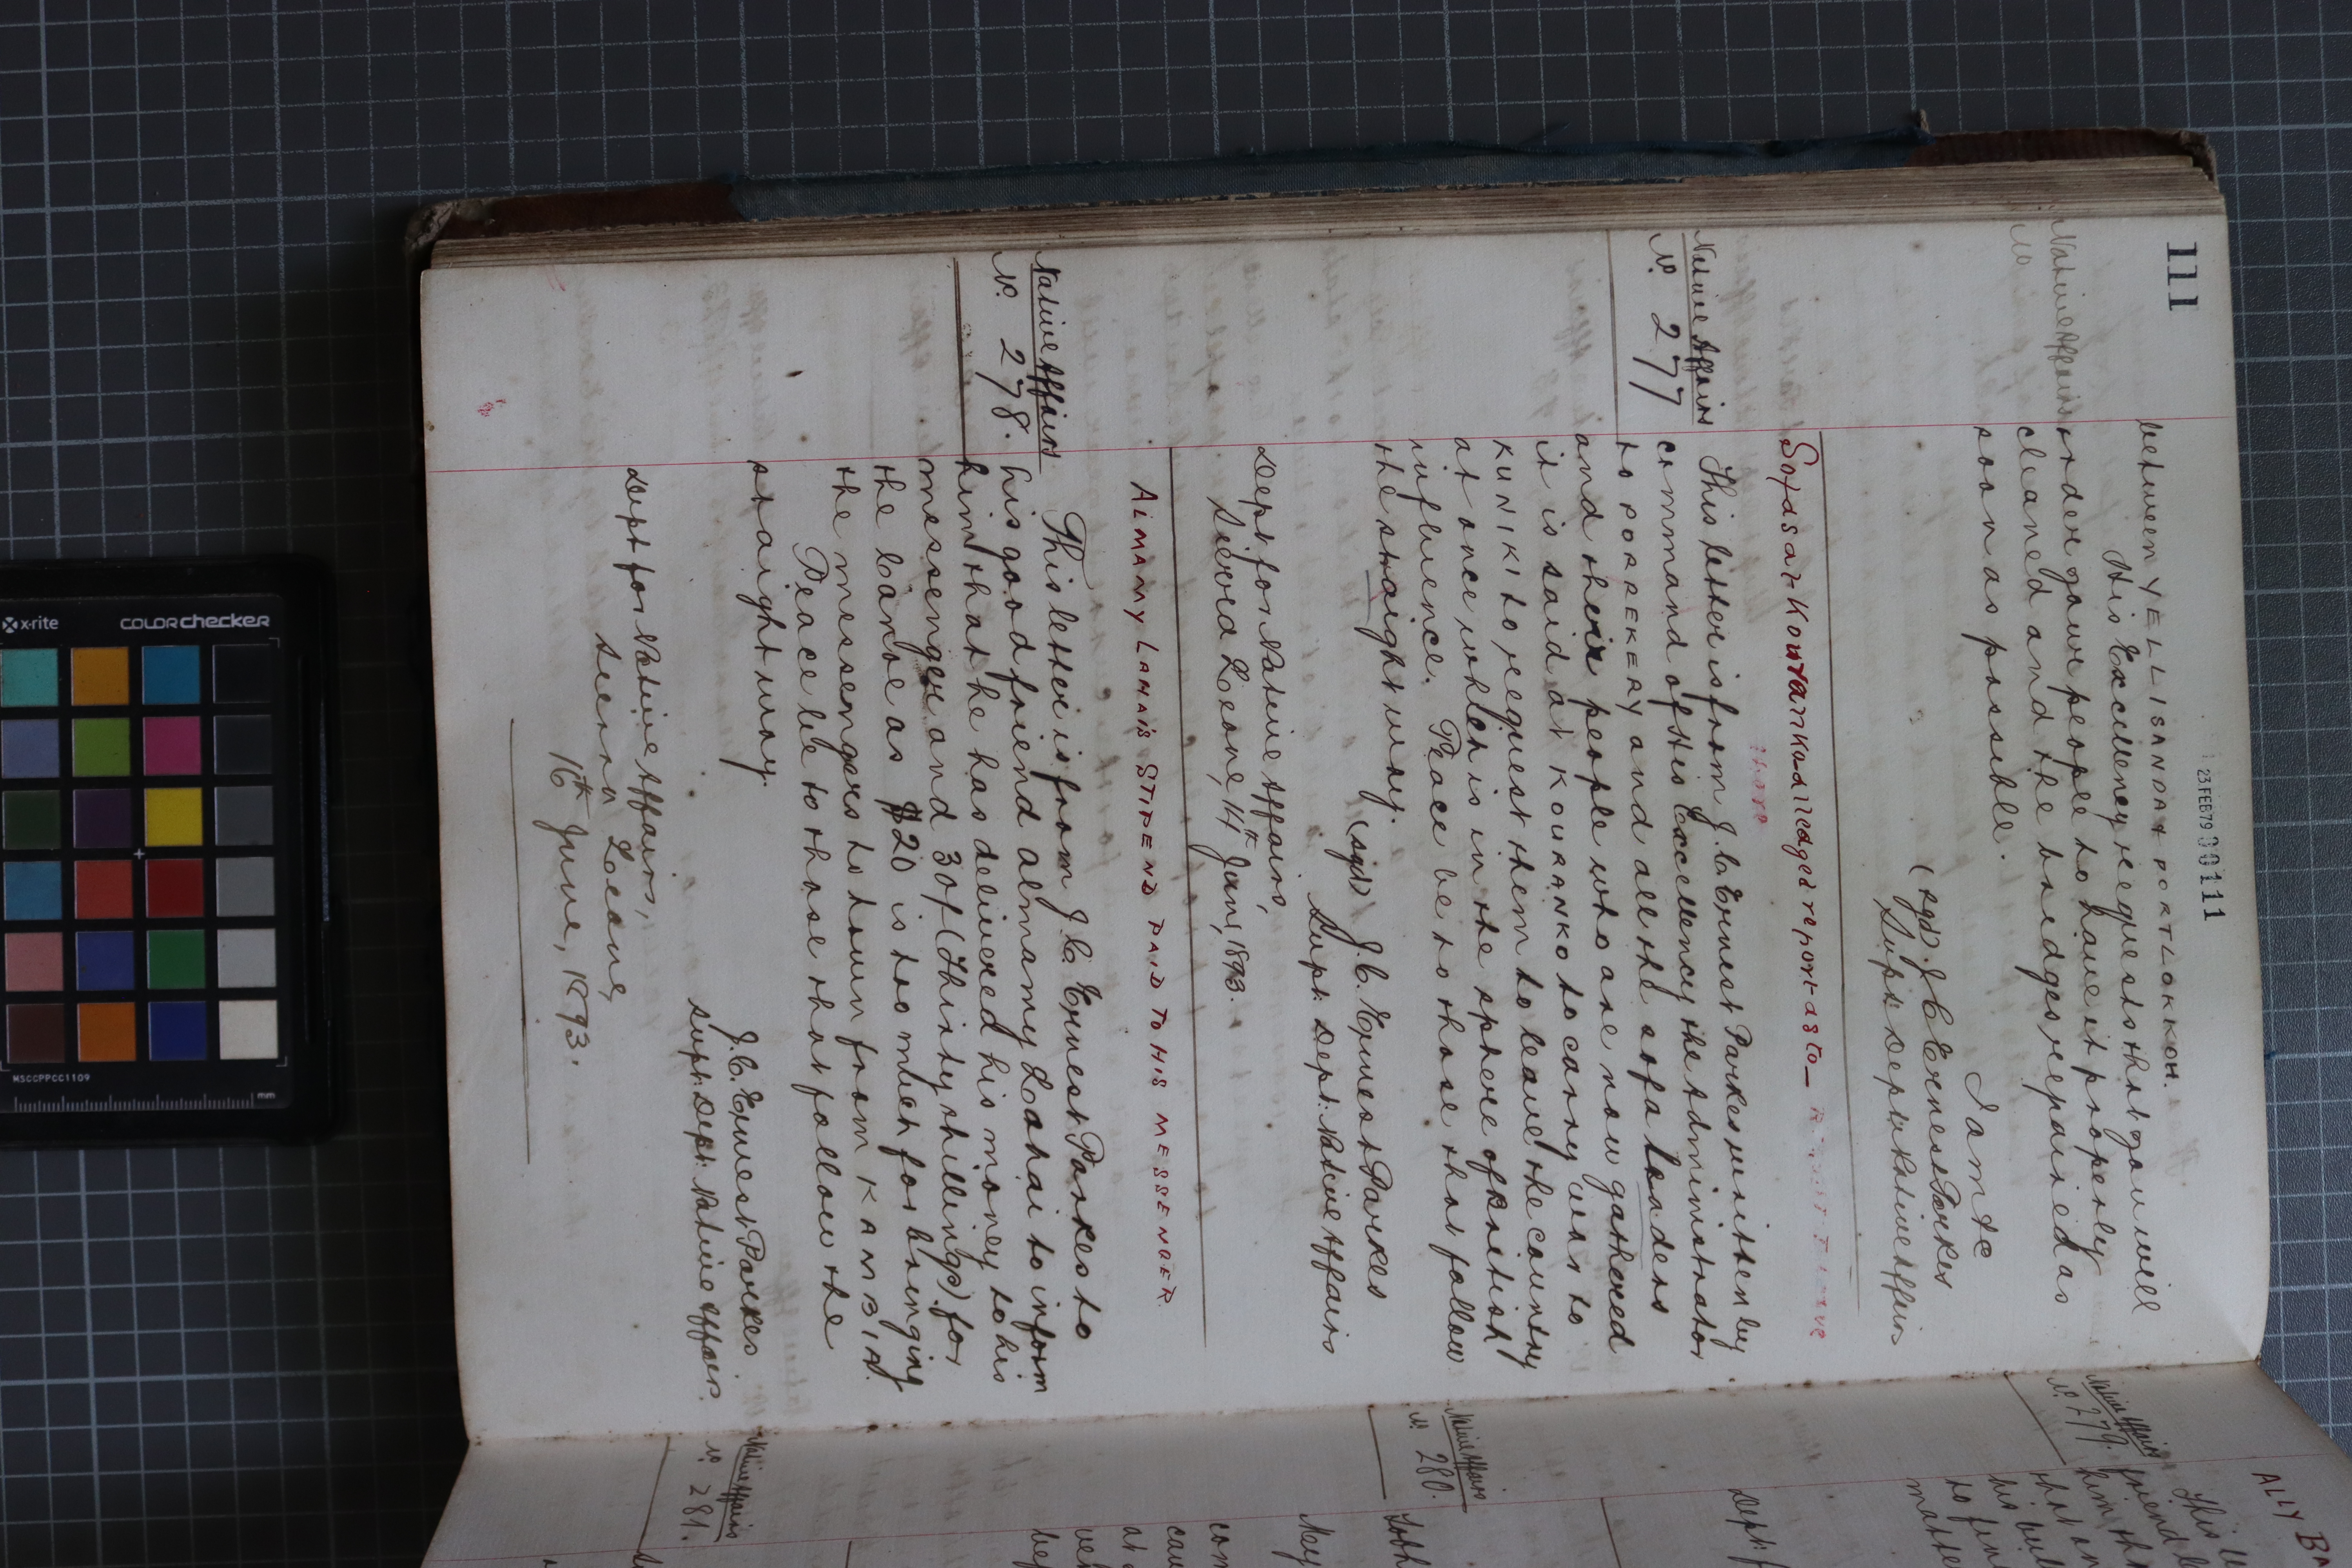 111
23 FEB 79 00111
between YELLISANDA & PORTLOKKOH.
His Excellency requests that you will
Native Affairs
No
under your people to have it properly
cleaned and the bridges repaired as
soon as possible.
I am &c
(sgd) J C Ernest Parkes
Supt Dept Native Affairs
Sofas at Kouranko alleged report as to —
there
This letter is from J. C. Ernest Parkes written by
Native Affairs
No. 277
command of His Excellency the Administrator
to PORREKERY and all the sofa leaders
and their people who are now gathered
it is said at KOURANKO to carry war to
KUNIKI to request them to leave the country
at once which is in the sphere of British
influence. Peace be to those that follow
the straight way.
(sgd) J. C. Ernest Parkes
Supt. Dept. Native Affairs
Dept for Native Affairs,
Sierra Leone, 14th June, 1893.
ALMAMY LAHAIS STIPEND PAID TO HIS MESSENGER
This letter is from J. C. Ernest Parkes to
Native Affairs
No. 278.
his good friend Almamy Lahai to inform
him that he has delivered his money to his
messenger and 30/ (Thirty shillings) for
the Canoe as $20 is too much for bringing
the messengers to town from KAMBIA.
Peace be to those that follow the
straight way.
J. C. Ernest Parkes
Supt. Dept. Native Affairs.
Dept for Native Affairs,
Sierra Leone,
16th June, 1893.
ALLY BA
This l
Native Affairs
No. 279.
friend
him th
that an
his bu
to fin
matte
Dept f
Native Affairs
No. 280.
May
com
cau
at
Native Affairs
No. 281.
x-rite
COLORchecker
MSCCPPCC1109
mm